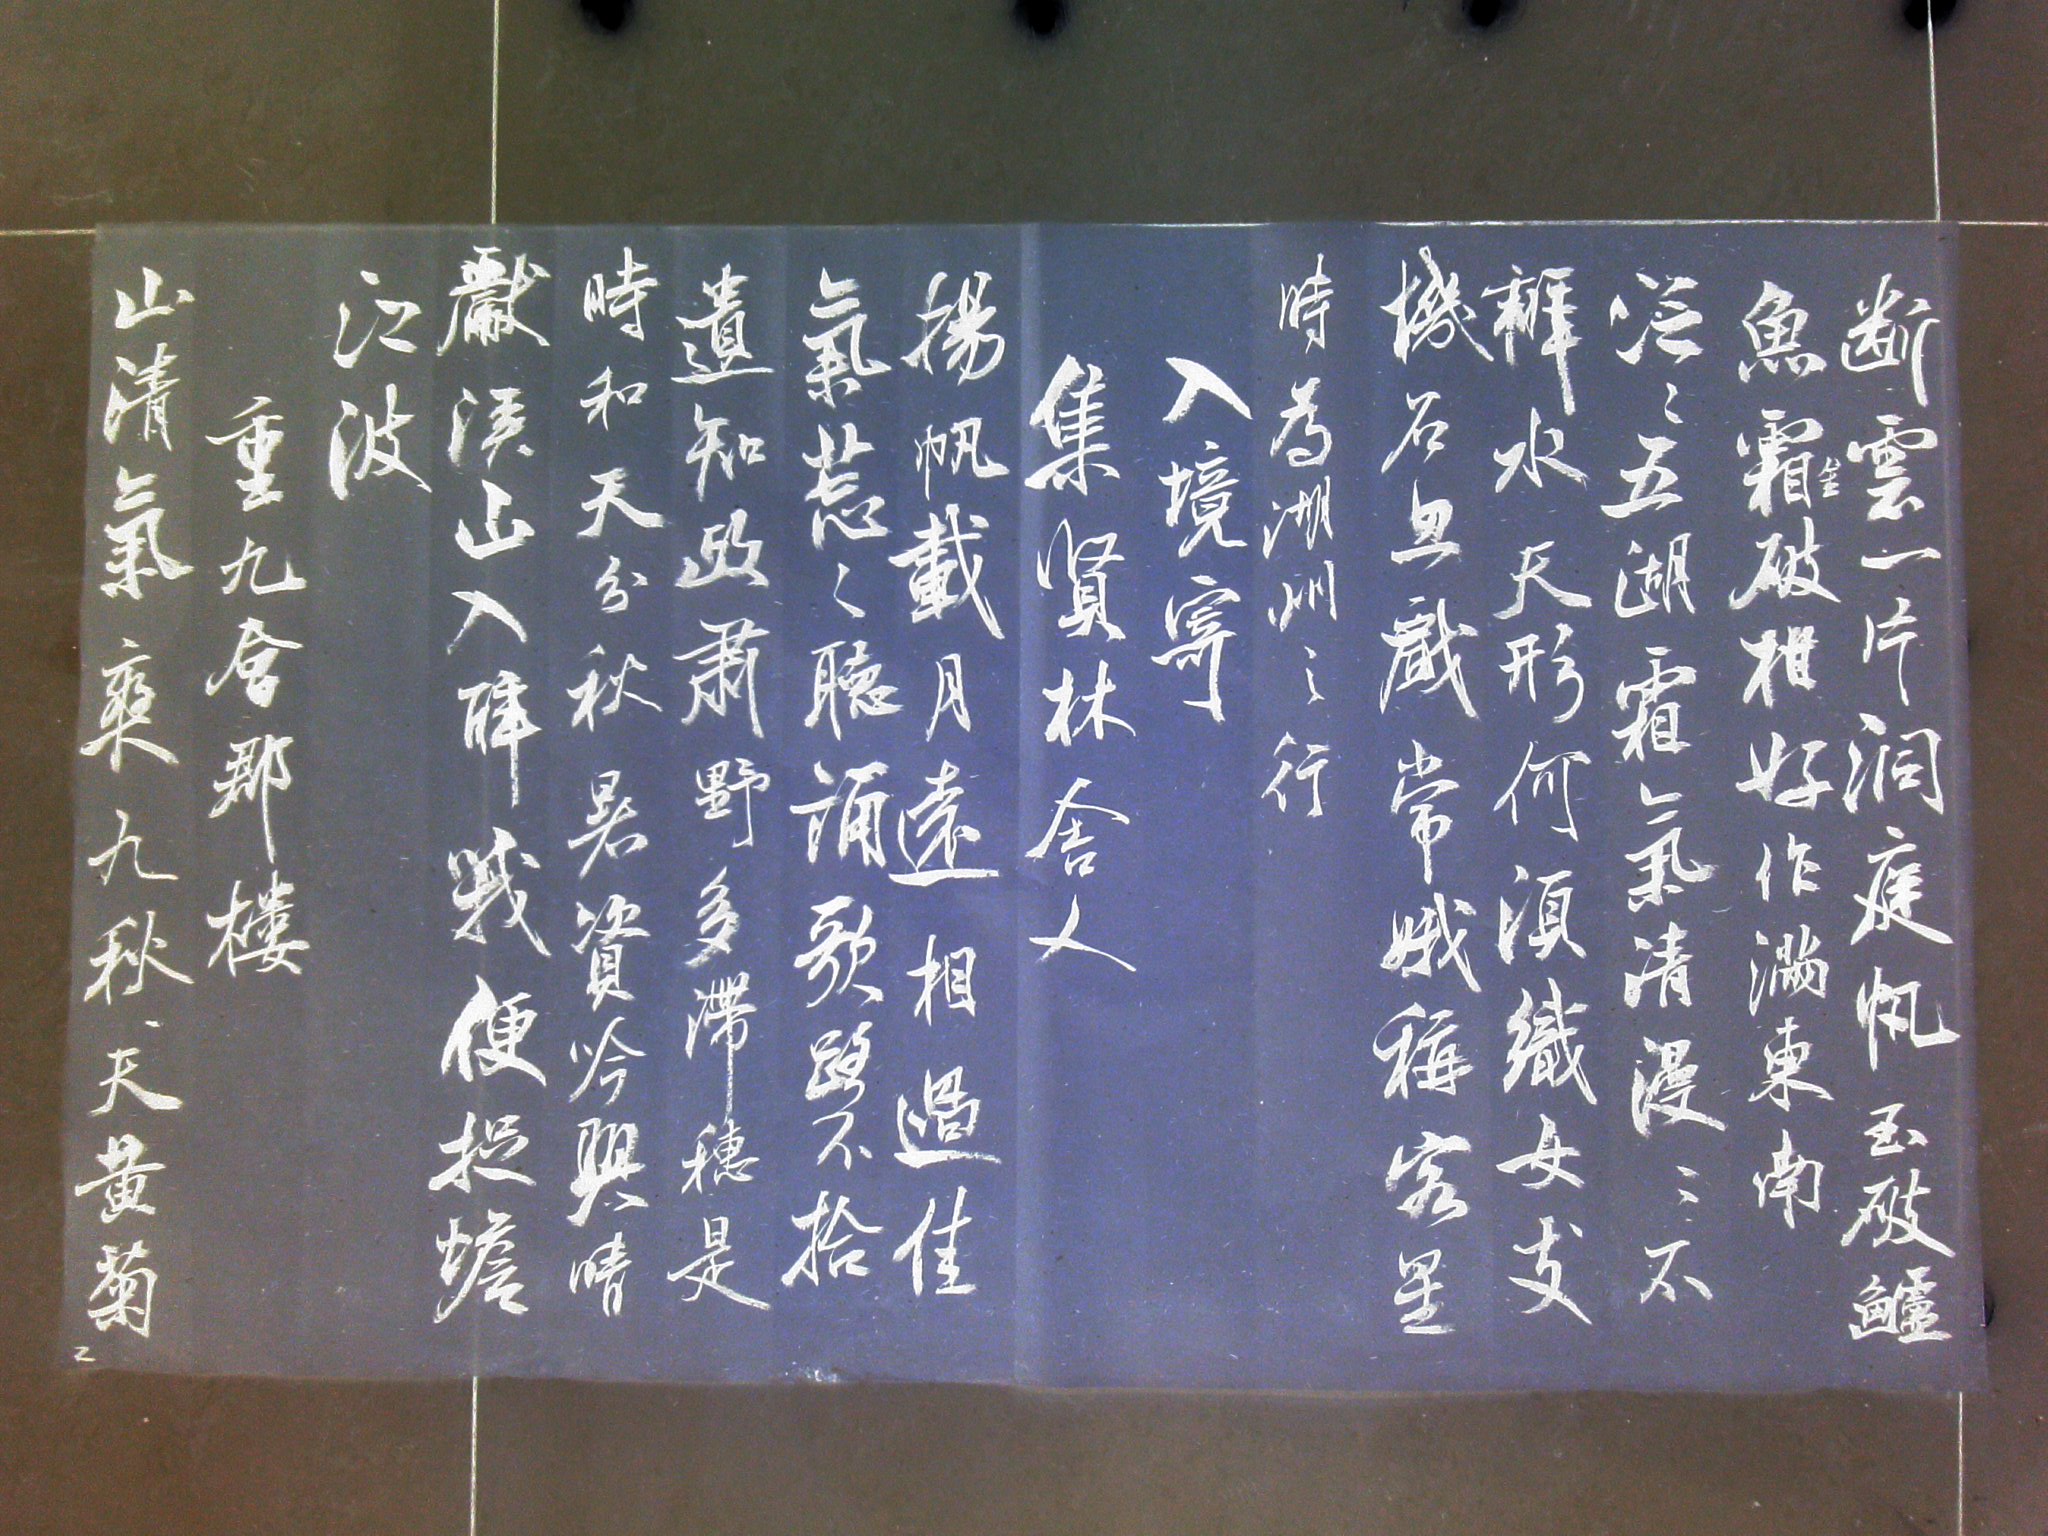 断雲一片洞庭帆玉破鱸
魚霜金破柑好作滿東南
泛〻五湖霜氣清漫〻不
辨水天形何須織女支
機石且戲常娥稱客星
時為湖州之行
入境寄
集賢林舍人
揚帆載月遠相過佳
氣蔥〻聽誦歌路不拾
遺知政肅野多滯穗是
時和天分秋暑資吟興晴
獻溪山入醉哦便捉蟾
江波
重九會郡樓
山清氣爽九秋天黃菊
2